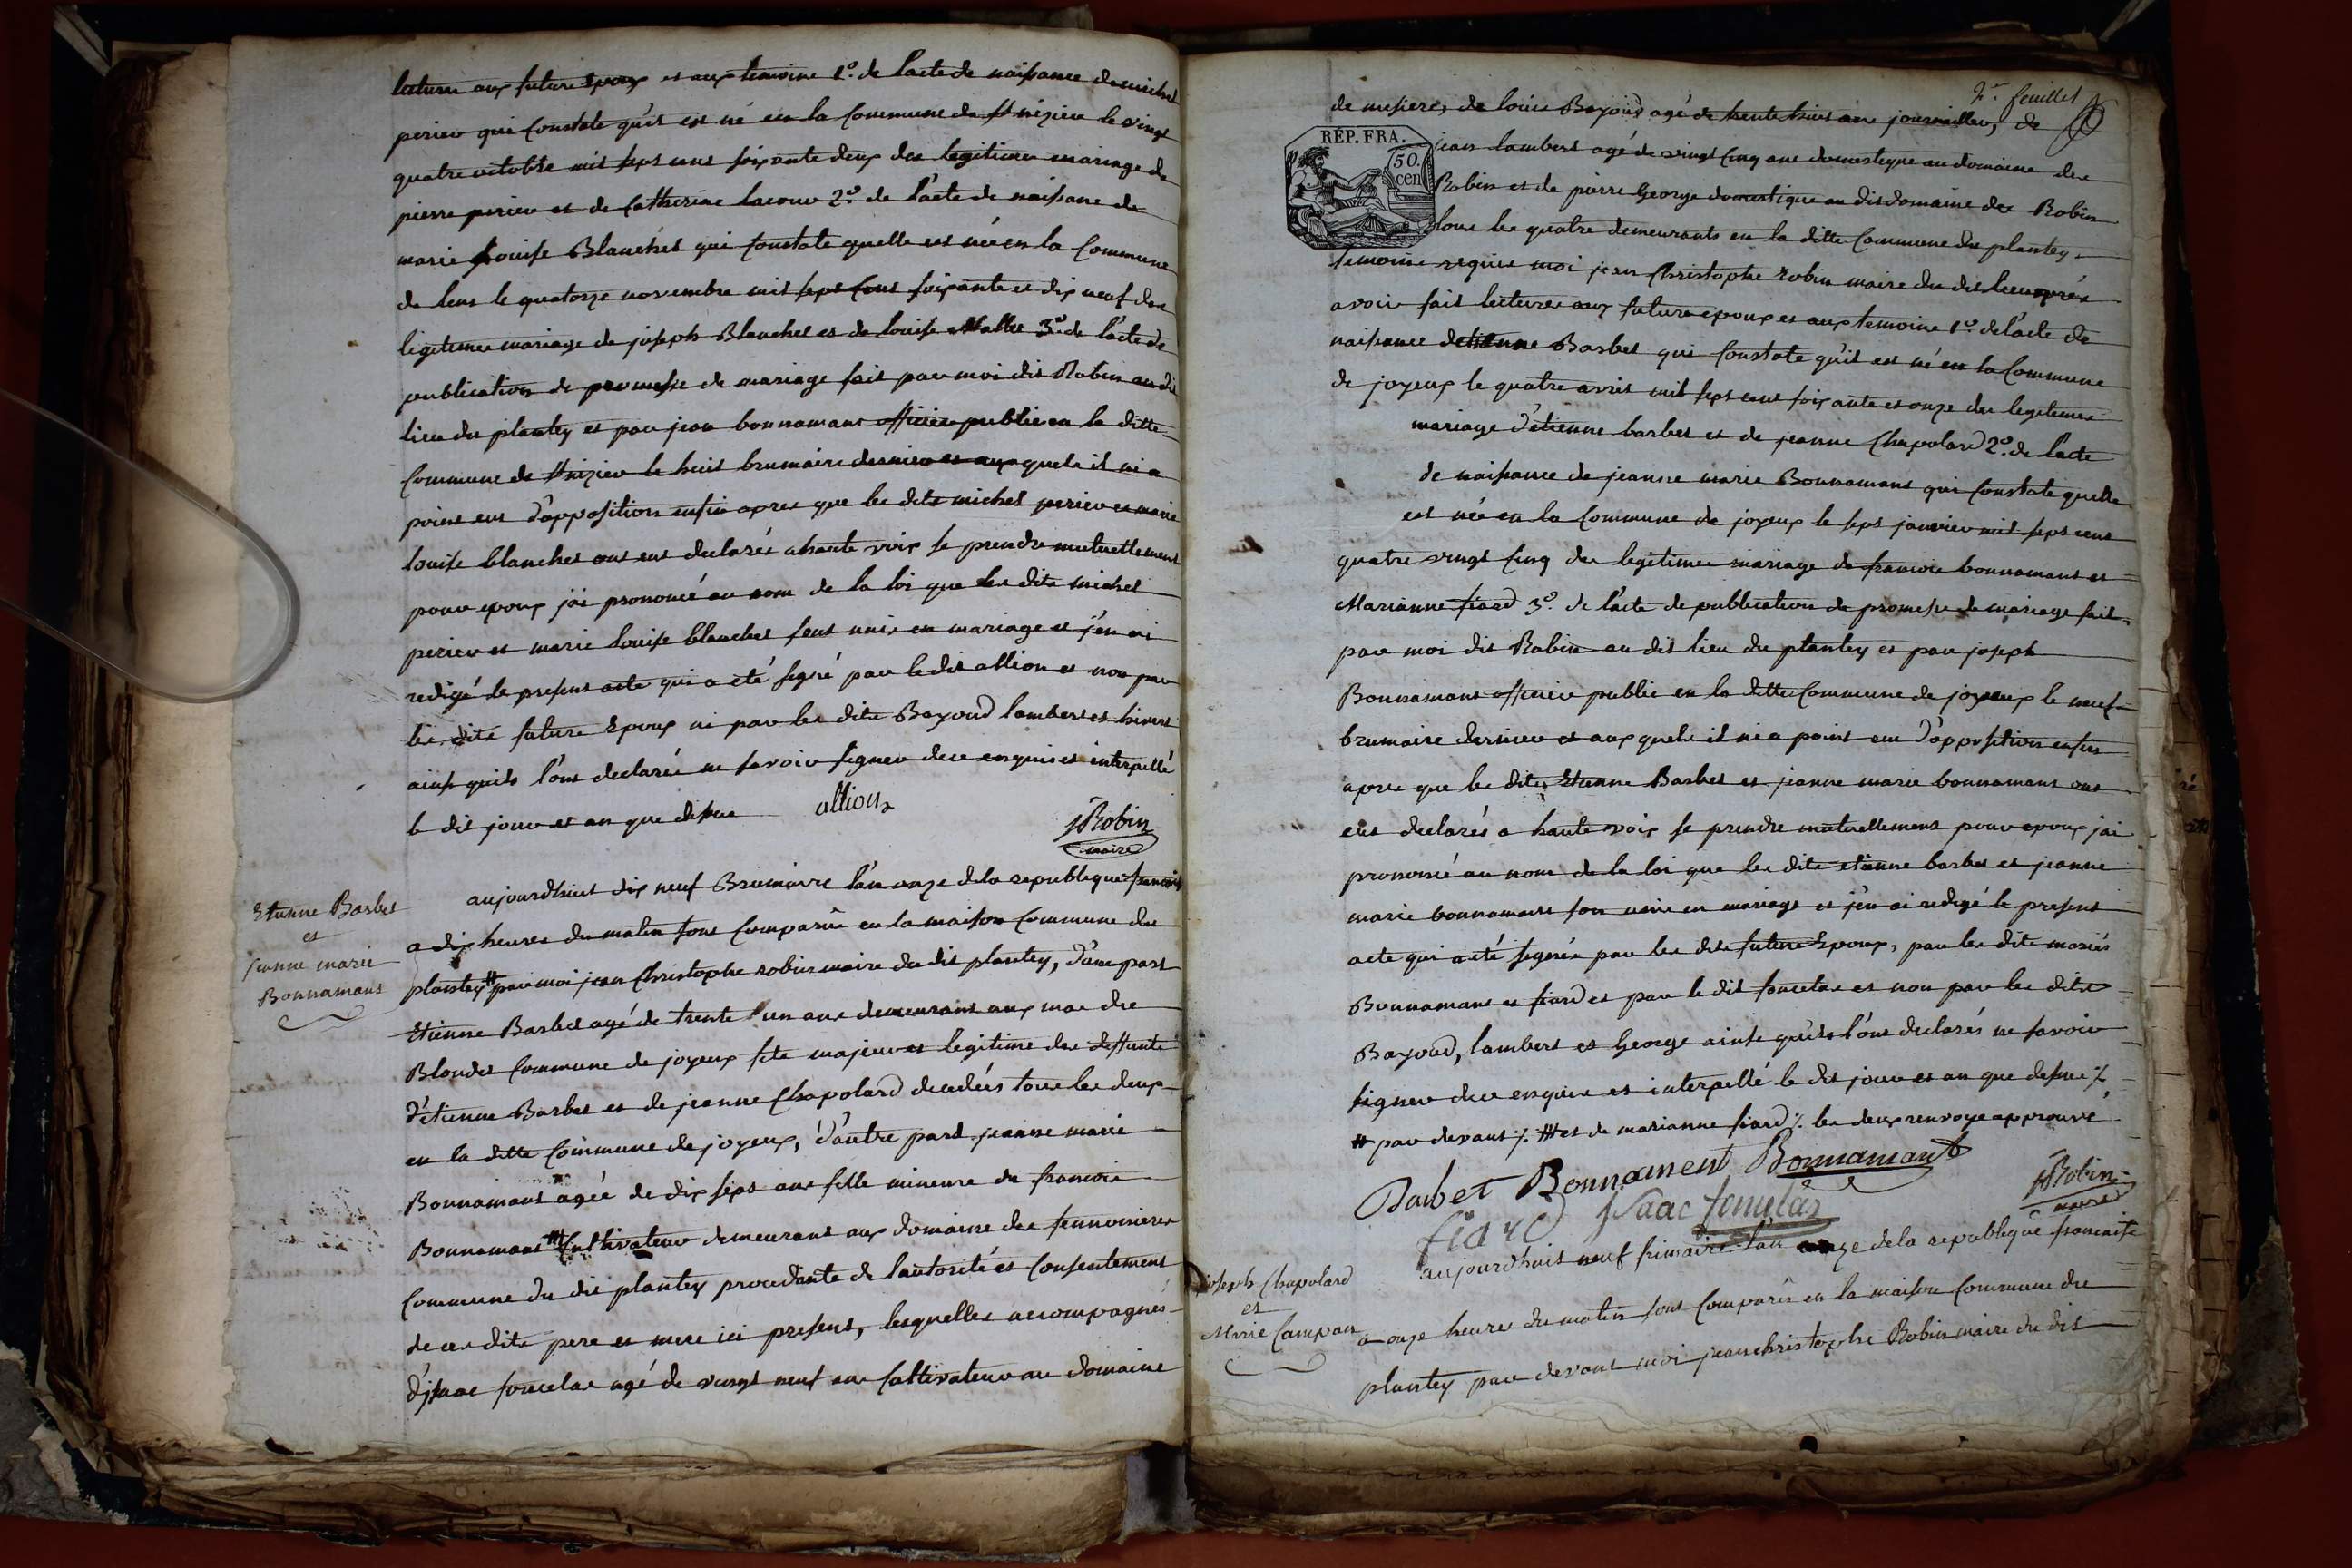 lecture aux futurs Epoux et aux temoins 1º. de lacte de naissance de michel
perier qui Constate qu'il est né en la Commune de St nizier le vingt
quatre octobre mil sept cens soixante deux du legitime mariage de
pierre perier et de Catherine 2º. de l'acte de naissance de
marie Louise Blanchet qui Constate quelle est née en la Commune
de lens le quatorze novembre mil sept Cens soixante et dix neuf du
legitime mariage de joseph Blanchet et de louise 3º. de l'acte de
publication de promesse de mariage fait par moi dit Robin au dit
lieu du plantey et par jean bonnamant officier public en la ditte
Commune de St nizier le huit brumaire dernier et auxquels il ni a
point eut d'opposition enfin apres que les dits michel perier et marie
louise blanchet ont eut declarés a haute voix se prendre mutuellement
pour epoux jai prononcé au nom de la loi que les dits michel
perier et marie Louise blanchet sont unis en mariage et j'en ai
redigé le present acte qui a eté signé par le dit allion et non par
les dits futurs Epoux ni par les dits Bayoud lambert et
ainsi quils l'ont declarés ne savoir signer de ce enquis et interpellé
le dit jour et an que dessus allion
jRobin
maire
Etienne Barbet
et
jeanne marie
Bonnamant
aujourdhuit dix neuf Brumaire l'an onze de la republique francois
a dix heures du matin sont Comparus en la maison Commune du
plantey # par moi jean Christophe robin maire du dit plantey, d'une part
Etienne Barbet agé de trente un ans demeurant aux mas des
Blondes Commune de joyeux fils majeur et legitime des deffunts
d'étienne Barbet et de jeanne Chapolard decedées tous les deux
en la ditte Commune de joyeux, d'autre part jeanne marie
Bonnamant agée de dix sept ans fille mineure de francois
Bonnamant ## Cultivateur demeurant aux domaine des
Commune du dit plantey procedante de l'autorité et Consentement
de ces dits pere et mere ici presens, lesquelles accompagnés
d'jsaac foncelas agé de vingt neuf ans Cultivateur au domaine
2e. feuillet
de de louis Bayoud agé de trente huit ans journailler, de
RÉP. FRA.
50.
cen
jean lambert agé de vingt Cinq ans domestique au domaine des
Robin et de pierre George domestique au dit domaine des Robin
tous les quatre demeurants en la ditte Commune du plantey
temoins requis moi jean Christophe robin maire du dit lieu après
avoir fait lectures aux futurs epoux et aux temoins 1º. de l'acte de
naissance detienne Barbet qui Constate qu'il est né en la Commune
de joyeux le quatre avril mil sept cens soixante et onze du legitime
mariage d'étienne barbet et de jeanne Chapolard 2º. de l'acte
de naissance de jeanne marie Bonnamant qui Constate quelle
est née en la Commune de joyeux le sept janvier mil sept cens
quatre vingt Cinq du legitime mariage de francois bonnamant et
Marianne fiard 3º. de l'acte de publication de promesse de mariage fait
par moi dit Robin au dit lieu du plantey et par joseph
Bonnamant officier public en la ditte Commune de joyeux le neuf
brumaire dernier et aux quels il ni a point eu d'opposition enfin
apres que les dits Etienne Barbet et jeanne marie bonnamant ont
eus declarés a haute voix se prendre mutuellement pour epoux jai
prononcé au nom de la loi que les dits etienne barbet et jeanne
marie bonnamant son unis en mariage et j'en ai redigé le present
acte qui a eté signés par les dits futurs Epoux, par les dits mariés
Bonnamant et fiard et par le dit foncelas et non par les dits
Bayoud, lambert et George ainsi qu'ils l'ont declarés ne savoir
signer de ce enquis et interpellé le dit jour et an que dessus ./.
# par devant ./. ## et de marianne fiard ./. les deux renvoye approuvé
Barbet Bonnament Bonnamant
fiard jsaac
jRobin
maire
joseph Chapolard
et
Marie Campan
aujourdhuit neuf frimaire l'an onze de la republique francaise
a onze heures du matin sont Comparus en la maison Commune du
plantey par devant moi jeanchristophe Robin maire du dit